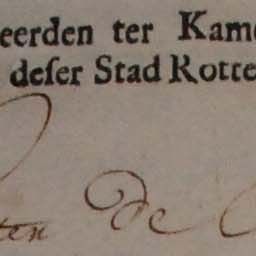 eerden ter Kam
deser Stad Rotte
ten de